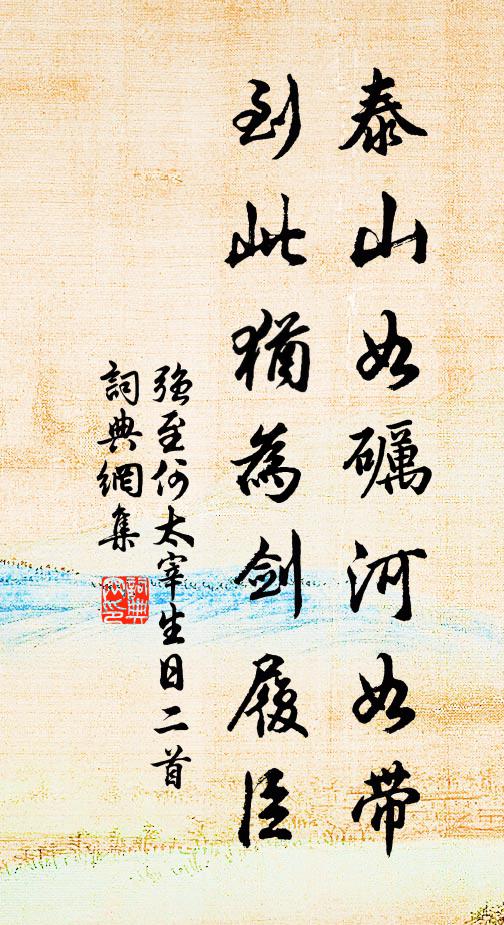 泰山如礪河如带
到此猶為劍履臣
強至何太宰生日二首
詞典網集